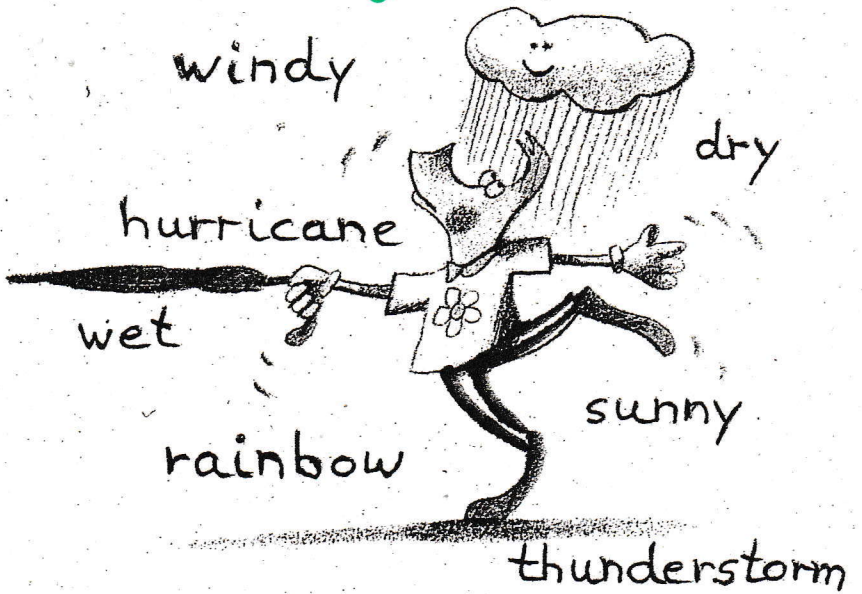 windy
dry
hurricane
wet
sunny
rainbow
thunderstorm